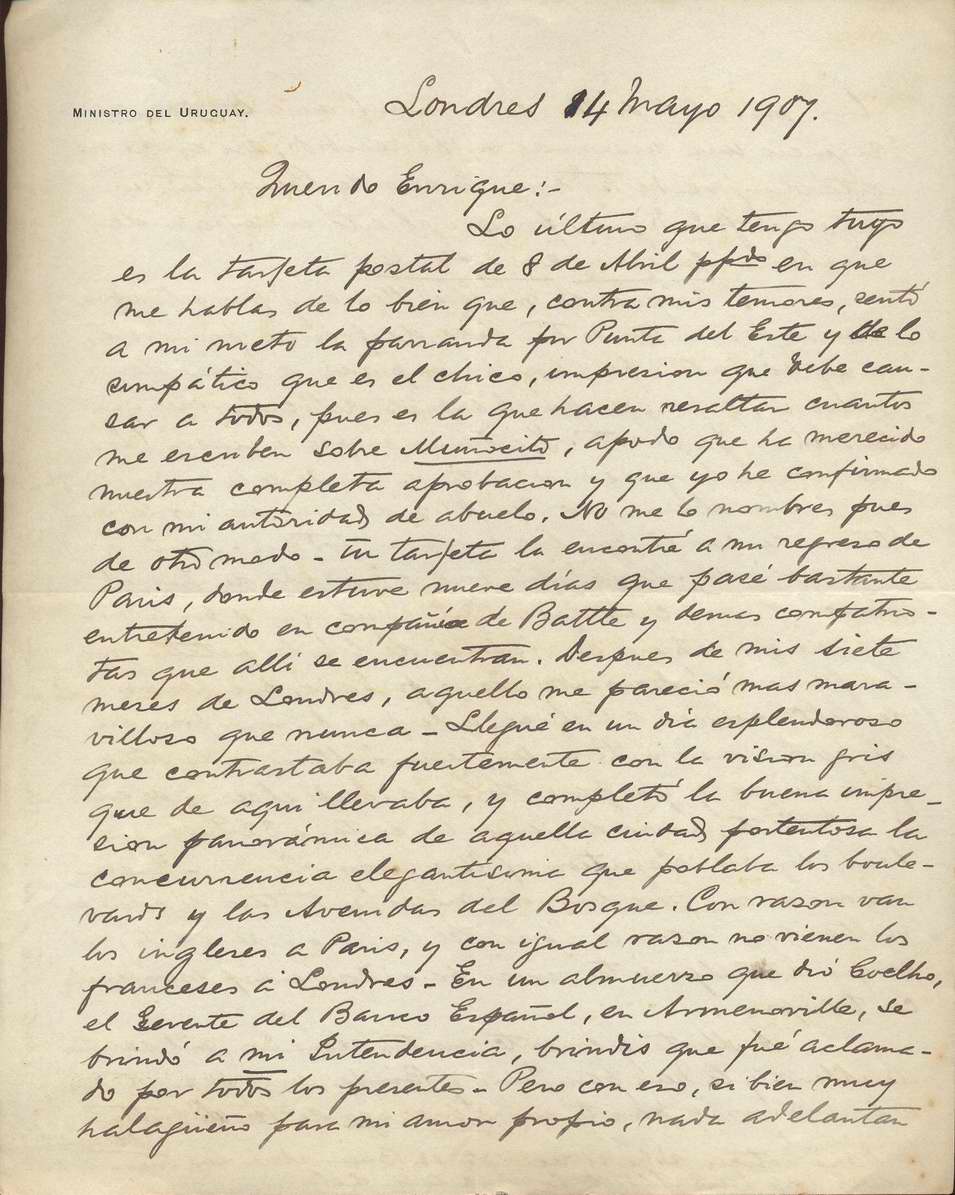 MINISTRO DEL URUGUAY.
Londres 14 Mayo 1907.
Querido Enrique:-
Lo último que tengo tuyo
es la tarjeta postal de 8 de Abril ppdo en que
me hablas de lo bien que, contra mis temores, sentó
a mi nieto la parranda por Punta del Este y de lo
simpático que es el chico, impresion que debe cau-
sar a todos, pues es la que hacen resaltar cuantos
me escriben sobre Muñocito, apodo que ha merecido
nuestra completa aprobacion y que yo he confirmado
con mi autoridad de abuelo. No me lo nombres pues
de otro modo - Tu tarjeta la encontré a mi regreso de
Paris, donde estuve nueve días que pasé bastante
entretenido en compañia de Battle y demas compatrio-
tas que alli se encuentran. Despues de mis siete
meses de Londres, aquello me pareció mas mara-
villoso que nunca - Llegué en un día esplendoroso
que contrastaba fuertemente con la vision gris
que de aqui llevaba, y completó la buena impre-
sion panorámica de aquella ciudad portentosa la
concurrencia elegantísima que poblaba los boule-
vards y las Avenidas del Bosque. Con razon van
los ingleses a Paris, y con igual razon no vienen los
franceses á Londres - En un almuerzo que dió Coelho,
el Gerente del Banco Español, en Armenonville, se
brindó a mi Intendencia, brindis que fué aclama-
do por todos los presentes - Pero con eso, si bien muy
halagüeño para mi amor propio, nada adelantan